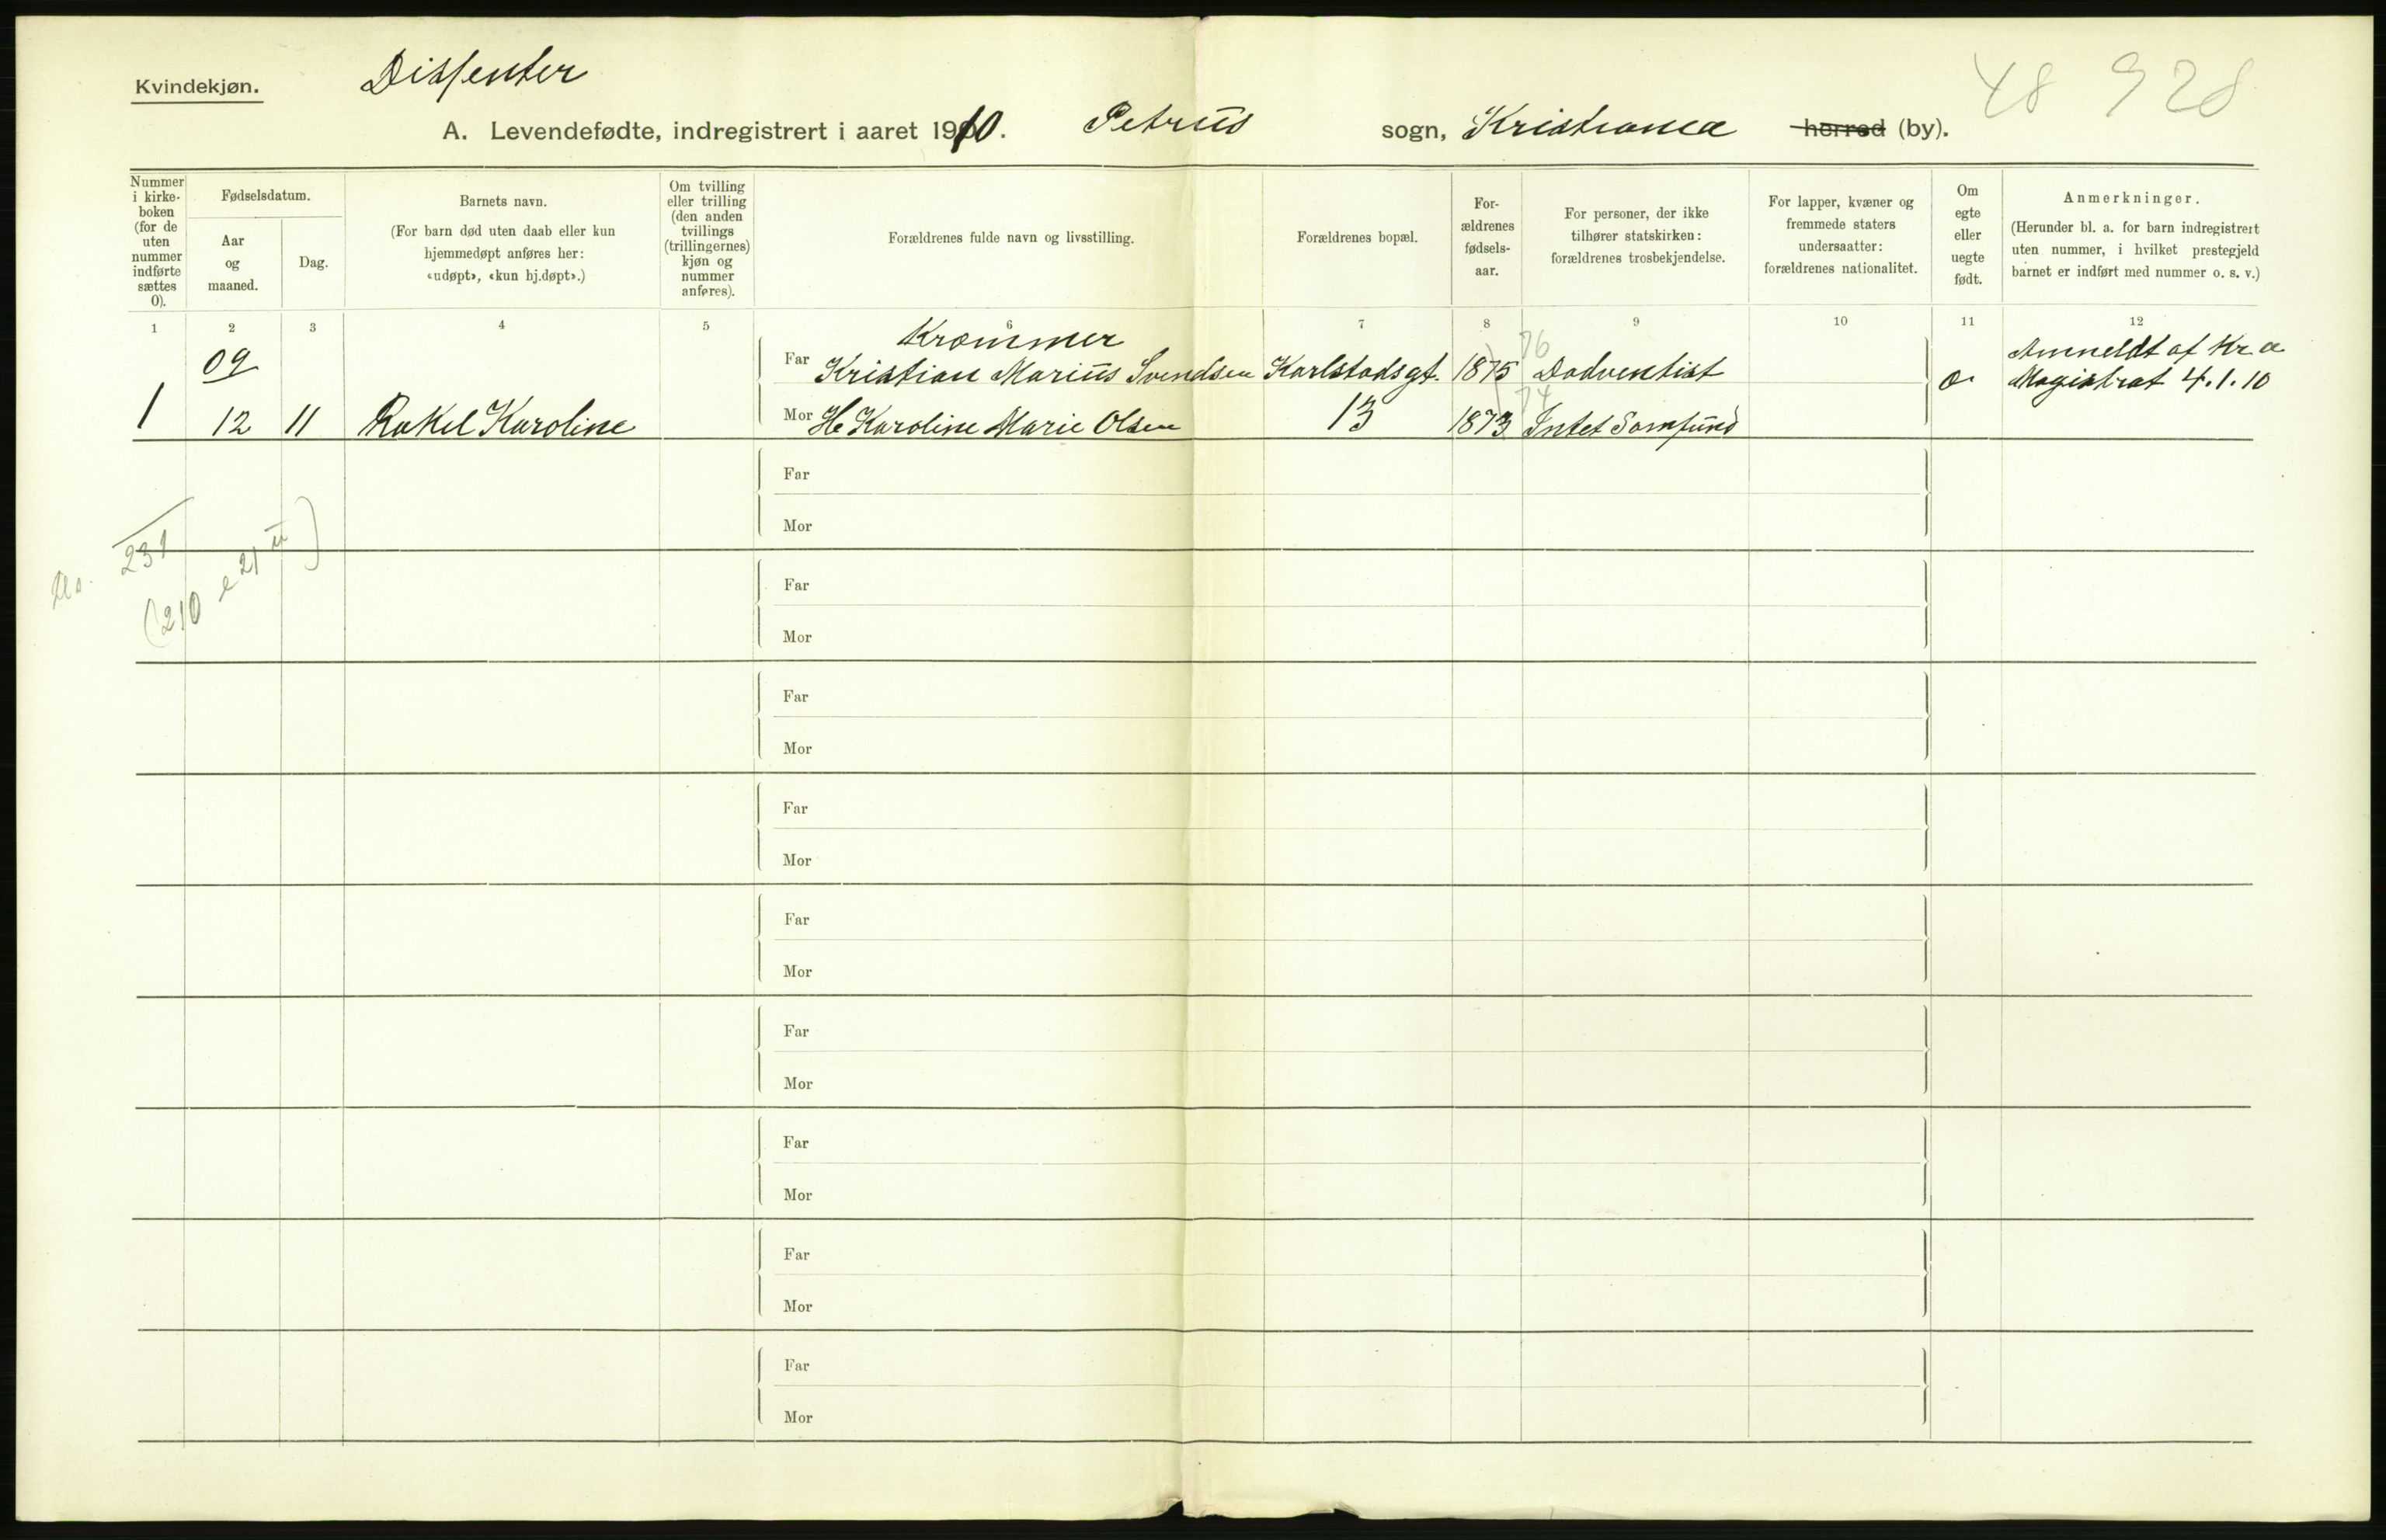 Kvindekjøn.
Dissenter
48 928
A. Levendefødte, indregistrert i aaret 1910. Petrus sogn, Kristiania herred (by).
Nummer i kirke-boken (for de uten nummer indførte sættes 0).
Fødselsdatum.
Aar og maaned.
Dag.
Barnets navn.
(For barn død uten daab eller kun hjemmedøpt anføres her: «udøpt», «kun hj.døpt».)
Om tvilling eller trilling (den anden tvillings (trillingernes) kjøn og nummer anføres).
Forældrenes fulde navn og livsstilling.
Forældrenes bopæl.
For-ældrenes fødsels-aar.
For personer, der ikke tilhører statskirken: forældrenes trosbekjendelse.
For lapper, kvæner og fremmede staters undersaatter: forældrenes nationalitet.
Om egte eller uegte født.
Anmerkninger.
(Herunder bl. a. for barn indregistrert uten nummer, i hvilket prestegjeld barnet er indført med nummer o. s. v.)
1 2 3 4 5 6 7 8 9 10 11 12
Kræmmer
09 Far Kristian Marius Svendsen Karlstadsgt. 1875 76 Dadventist Anmeldt af Kr a
Magistrat 4.1.10
1 12 11 Rakel Karoline Mor H Karoline Marie Olsen 13 1873 74 Intet Samfund
Far
Mor
231
(210 e 21
Far
Mor
Far
Mor
Far
Mor
Far
Mor
Far
Mor
Far
Mor
Far
Mor
Far
Mor